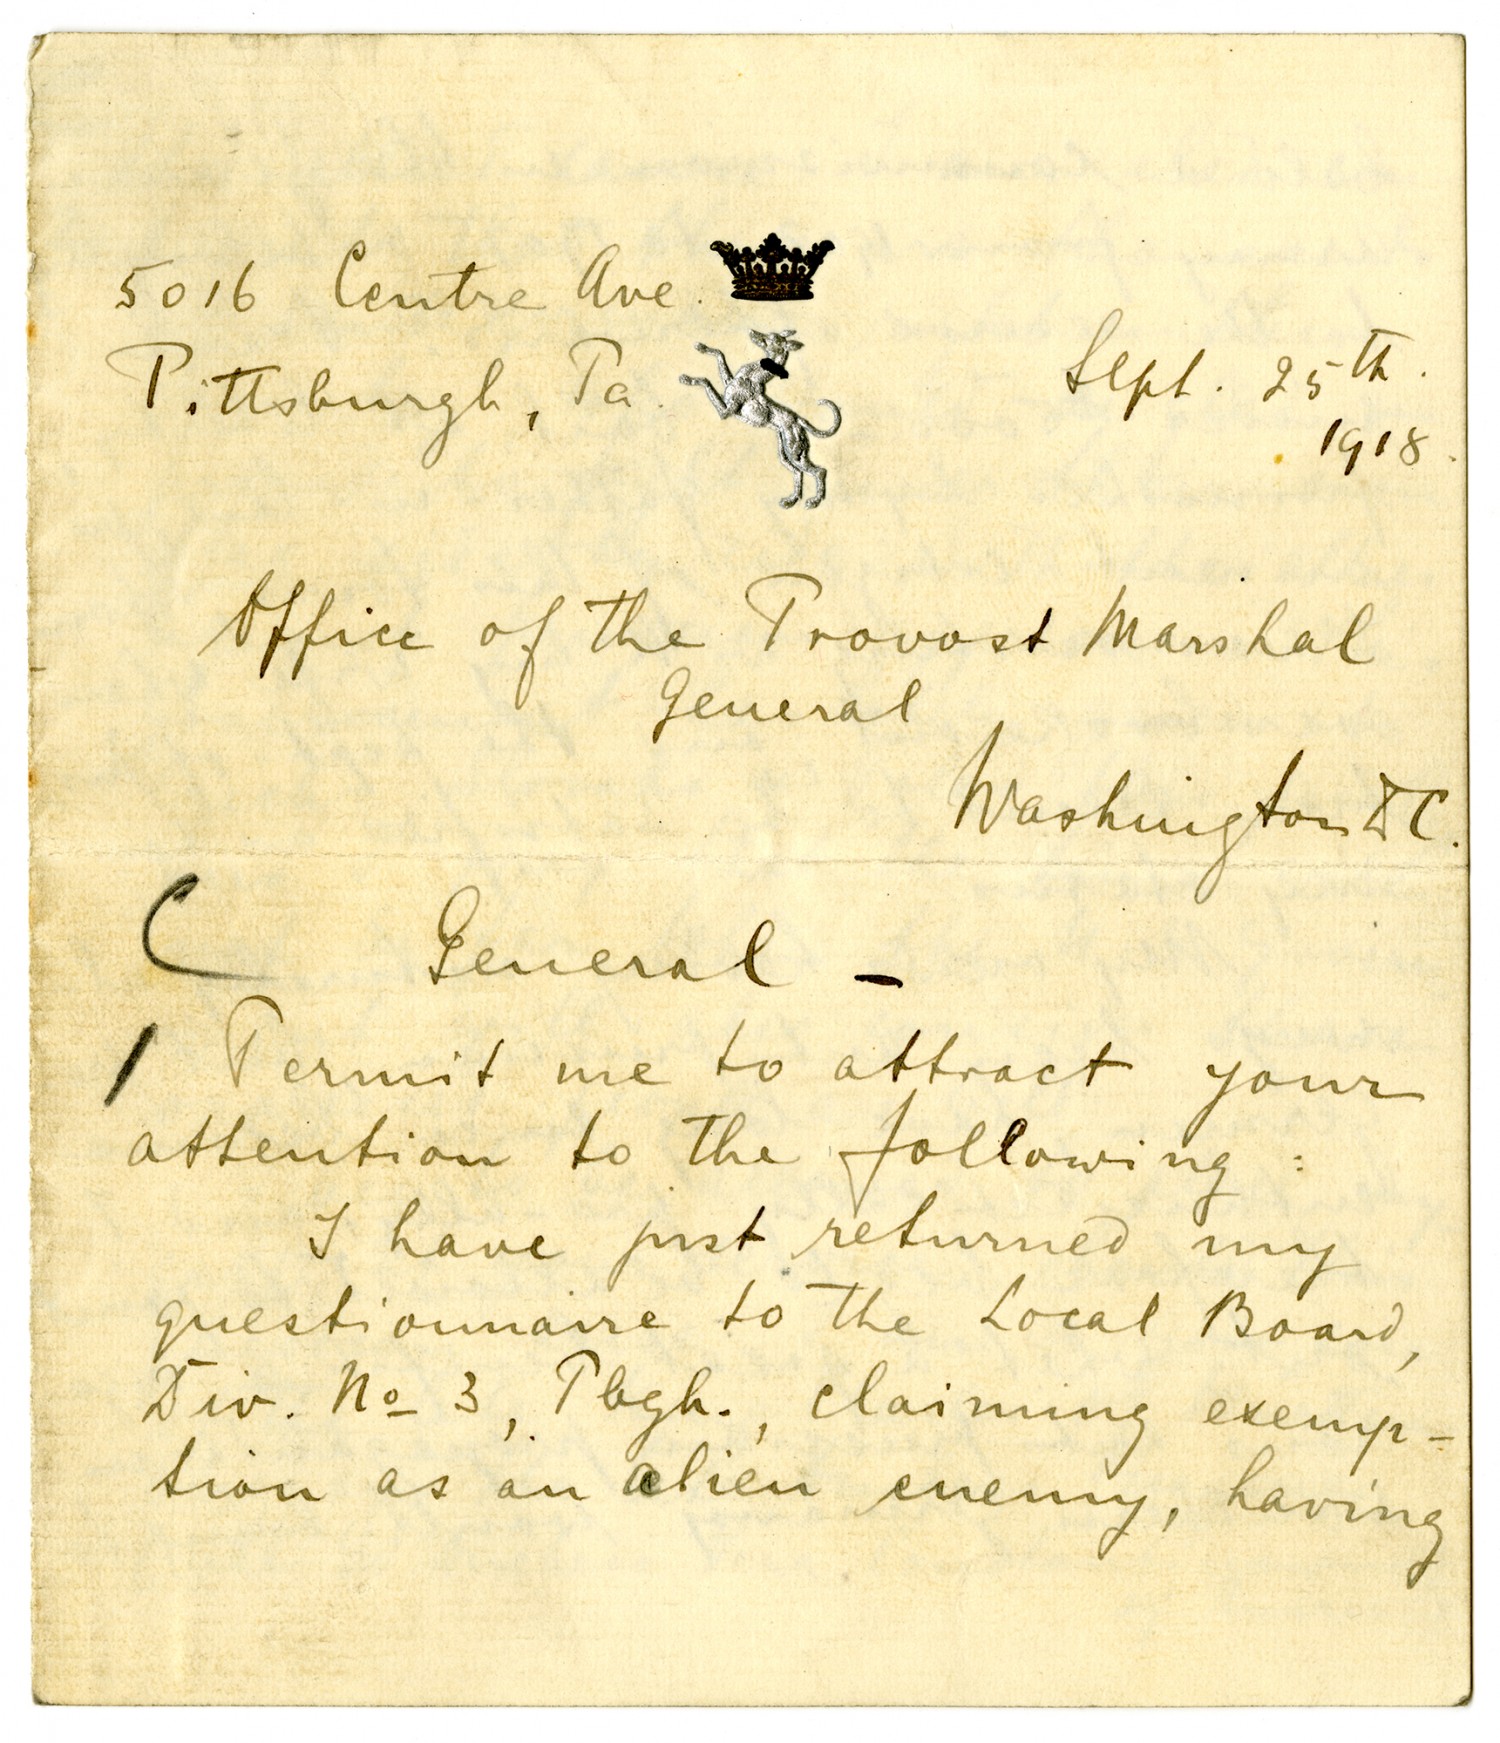 5016 Centre Ave.
Pittsburgh, Pa.
Sept. 25th.
1918.
Office of the Provost Marshal
General
Washington D C.
C
General –
/ Permit me to attract your
attention to the following :
I have just returned my
questionnaire to the Local Board,
Div. No 3, Pbgh., claiming exemp-
tion as an alien enemy, having